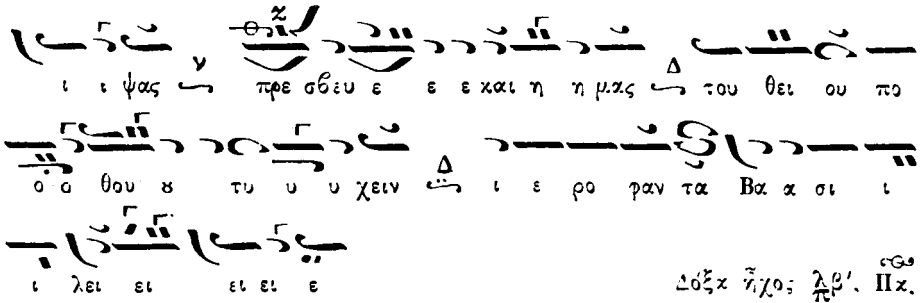 ι ι ψας πρε σβευ ε ε ε και η η μας του θει ου πο
ο ο θου ου τυ υ υ χειν ι ε ρο φαν τα Βα α σι ι
ι λει ει ει ει ε
Δόξα ἦχος λ π β'. Πα.